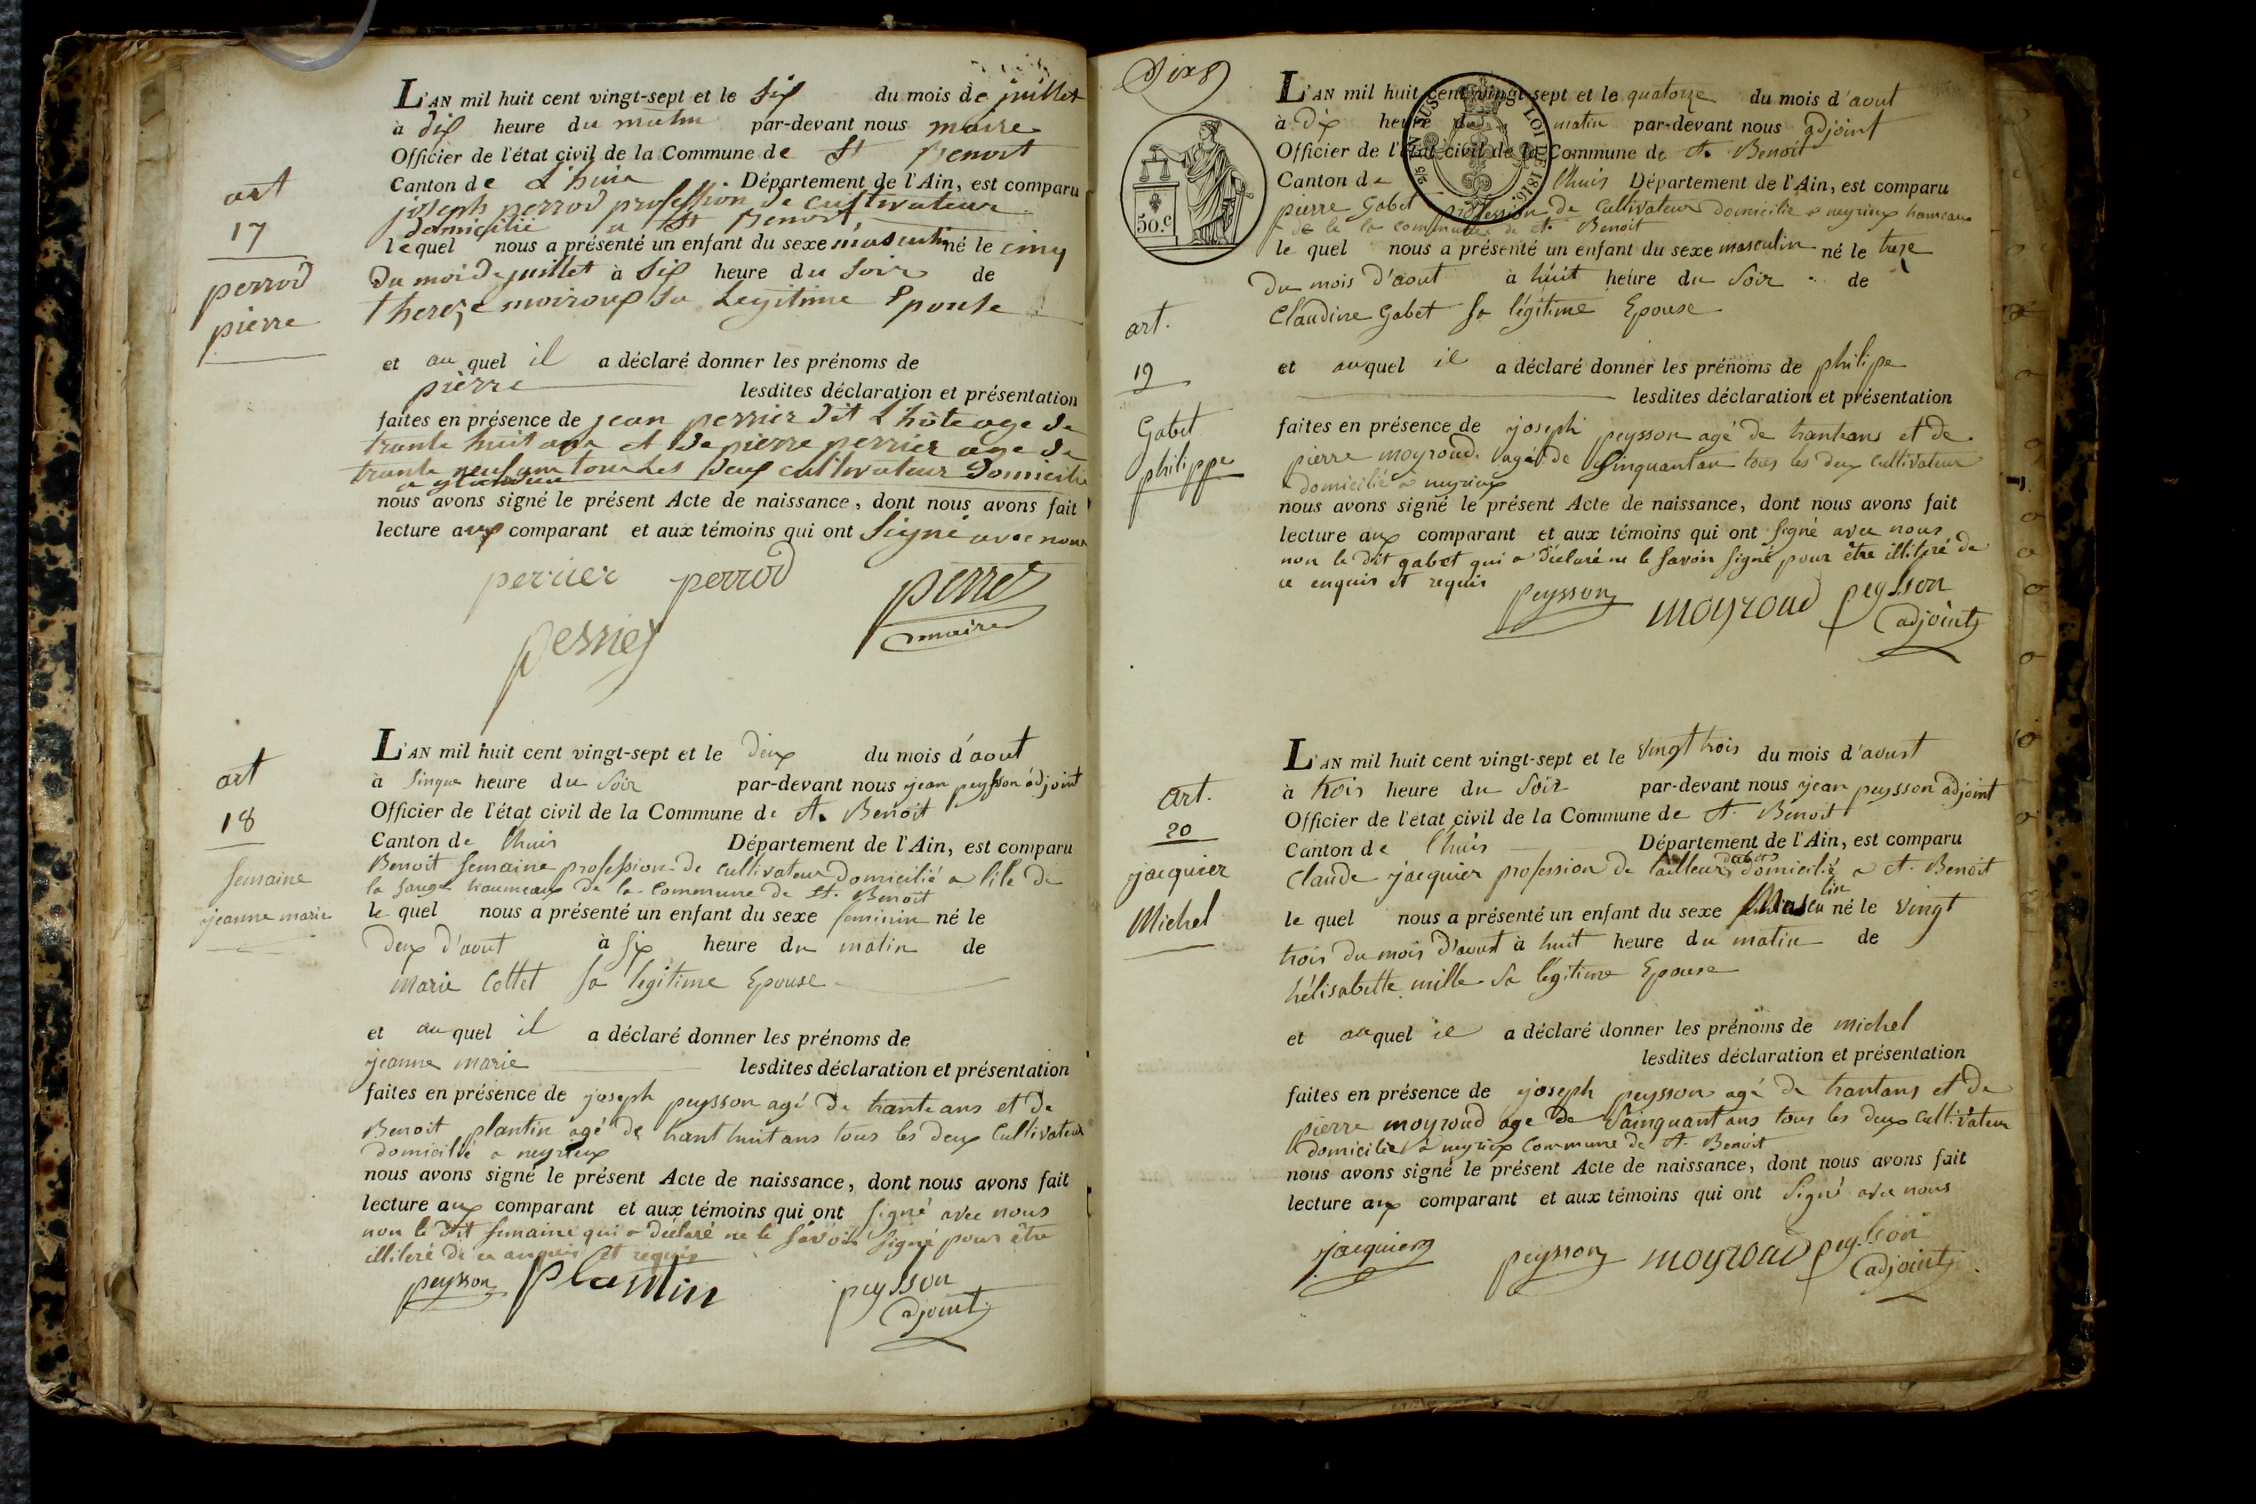 L'AN mil huit cent vingt-sept et le six du mois de juillet
à dix heure du matin par-devant nous maire
Officier de l'état civil de la Commune de St Benoit
Canton de L'huis Département de l'Ain, est comparu
joseph perrod profession de cultivateur
domicilié a St Benoit
le quel nous a présenté un enfant du sexe masculin né le cinq
du moi de juillet à six heure du soir de
thereze moiroux sa Legitime Epouse
et au quel il a déclaré donner les prénoms de
pierre lesdites déclaration et présentation
faites en présence de jean perrier dit L'hôte age de
trante huit ans et de pierre perrier age de
trante neuf ans tous Les deux cultivateur Domicilié
nous avons signé le présent Acte de naissance, dont nous avons fait
lecture aux comparant et aux témoins qui ont signé avec nous
perrier perrod perret
maire
perrier
art
17
perrod
pierre
L'AN mil huit cent vingt-sept et le deux du mois d'aout
à sinque heure du soir par-devant nous jean peysson adjoint
Officier de l'état civil de la Commune de St. Benoit
Canton de lhuis Département de l'Ain, est comparu
Benoit semaine profession de cultivateur domicilié a lile de
la sauge haumeaux de la commune de St. Benoit
le quel nous a présenté un enfant du sexe feminin né le
deux d'aout à six heure du matin de
marie Cottet sa legitime Epouse
et au quel il a déclaré donner les prénoms de
jeanne marie lesdites déclaration et présentation
faites en présence de joseph peysson agé de trante ans et de
Benoit plantin agé de trant huit ans tous les deux Cultivateur
domicillié a neyrieux
nous avons signé le présent Acte de naissance, dont nous avons fait
lecture aux comparant et aux témoins qui ont signé avec nous
non le dit semaine qui a déclaré ne le savoir signé pour être
illiteré de ce enquis et requis
peysson plantin peysson
adjoint
art
18
semaine
jeanne marie
dix 8
50.c
LOI DE 1816.
L'AN mil huit cent vingt-sept et le quatorze du mois d'aout
à dix heure du matin par-devant nous adjoint
Officier de l'état civil de la Commune de St. Benoit
Canton de lhuis Département de l'Ain, est comparu
pierre Gabet profession de Cultivateur domicilié a neyrieux hameaux
de la commune de St. Benoit
le quel nous a présenté un enfant du sexe masculin né le treze
du mois d'aout à huit heure du soir de
Claudine Gabet sa légitime Epouse
et auquel il a déclaré donner les prénoms de philipe
lesdites déclaration et présentation
faites en présence de joseph peysson agé de trantans et de
pierre moyroud agé de sinquantan tous les deux cultivateur
domicilié a neyrieux
nous avons signé le présent Acte de naissance, dont nous avons fait
lecture aux comparant et aux témoins qui ont signé avec nous
non le dit gabet qui a déclaré ne le savoir signé pour être illitéré de
ce enquis et requis
peysson moyroud peysson
adjoint
art.
19
Gabet
philippe
L'AN mil huit cent vingt-sept et le vingt trois du mois d'aoust
à trois heure du soir par-devant nous jean peysson adjoint
Officier de l'etat civil de la Commune de St. Benoit
Canton de lhuis Département de l'Ain, est comparu
Claude jacquier profession de tailleur domicilié a St. Benoit
le quel nous a présenté un enfant du sexe Masculin né le vingt
trois du mois d'aoust à huit heure du matin de
hélisabette mille sa légitime Epouse
et auquel il a déclaré donner les prénoms de michel
lesdites déclaration et présentation
faites en présence de joseph peysson agé de trantans et de
pierre moyroud age de sainquant ans tous les deux cultivateur
domicilié a neyrieux Commune de St. Benoit
nous avons signé le présent Acte de naissance, dont nous avons fait
lecture aux comparant et aux témoins qui ont signé avec nous
jacquier peysson moyroud peysson
adjoint
art.
20
jacquier
Michel